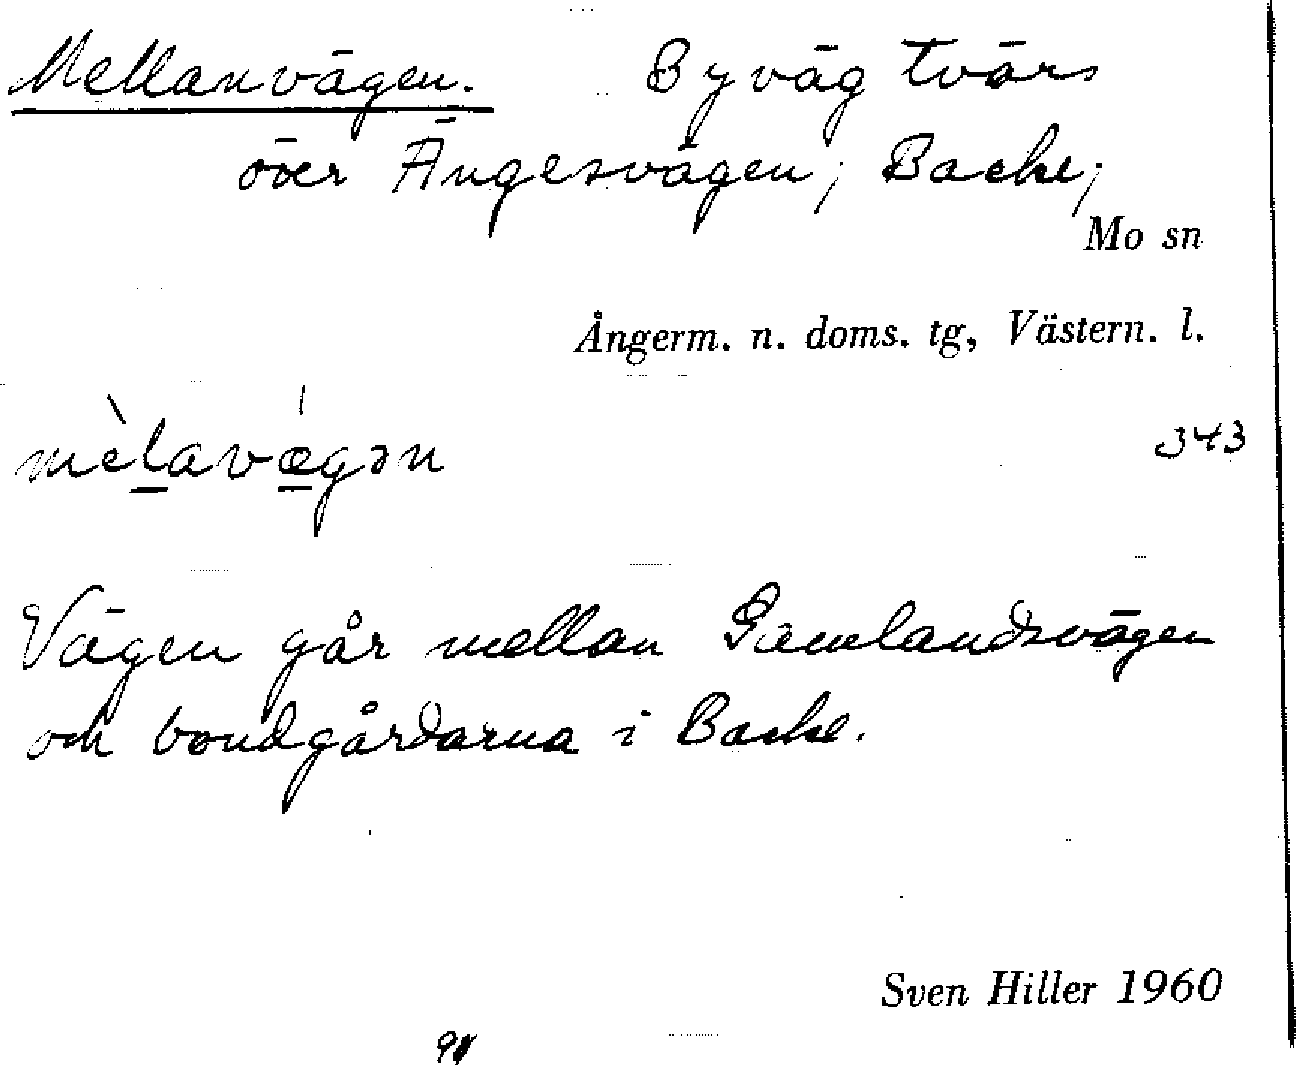 Mellanvägen. Byväg tvärs
över Ängesvägen; Backe;
Mo sn
Ångerm. n. doms. tg, Västern. l.
mèlavǽgən
343
Vägen går mellan Gamlandsvägen
och bondgårdarna i Backe.
Sven Hiller 1960